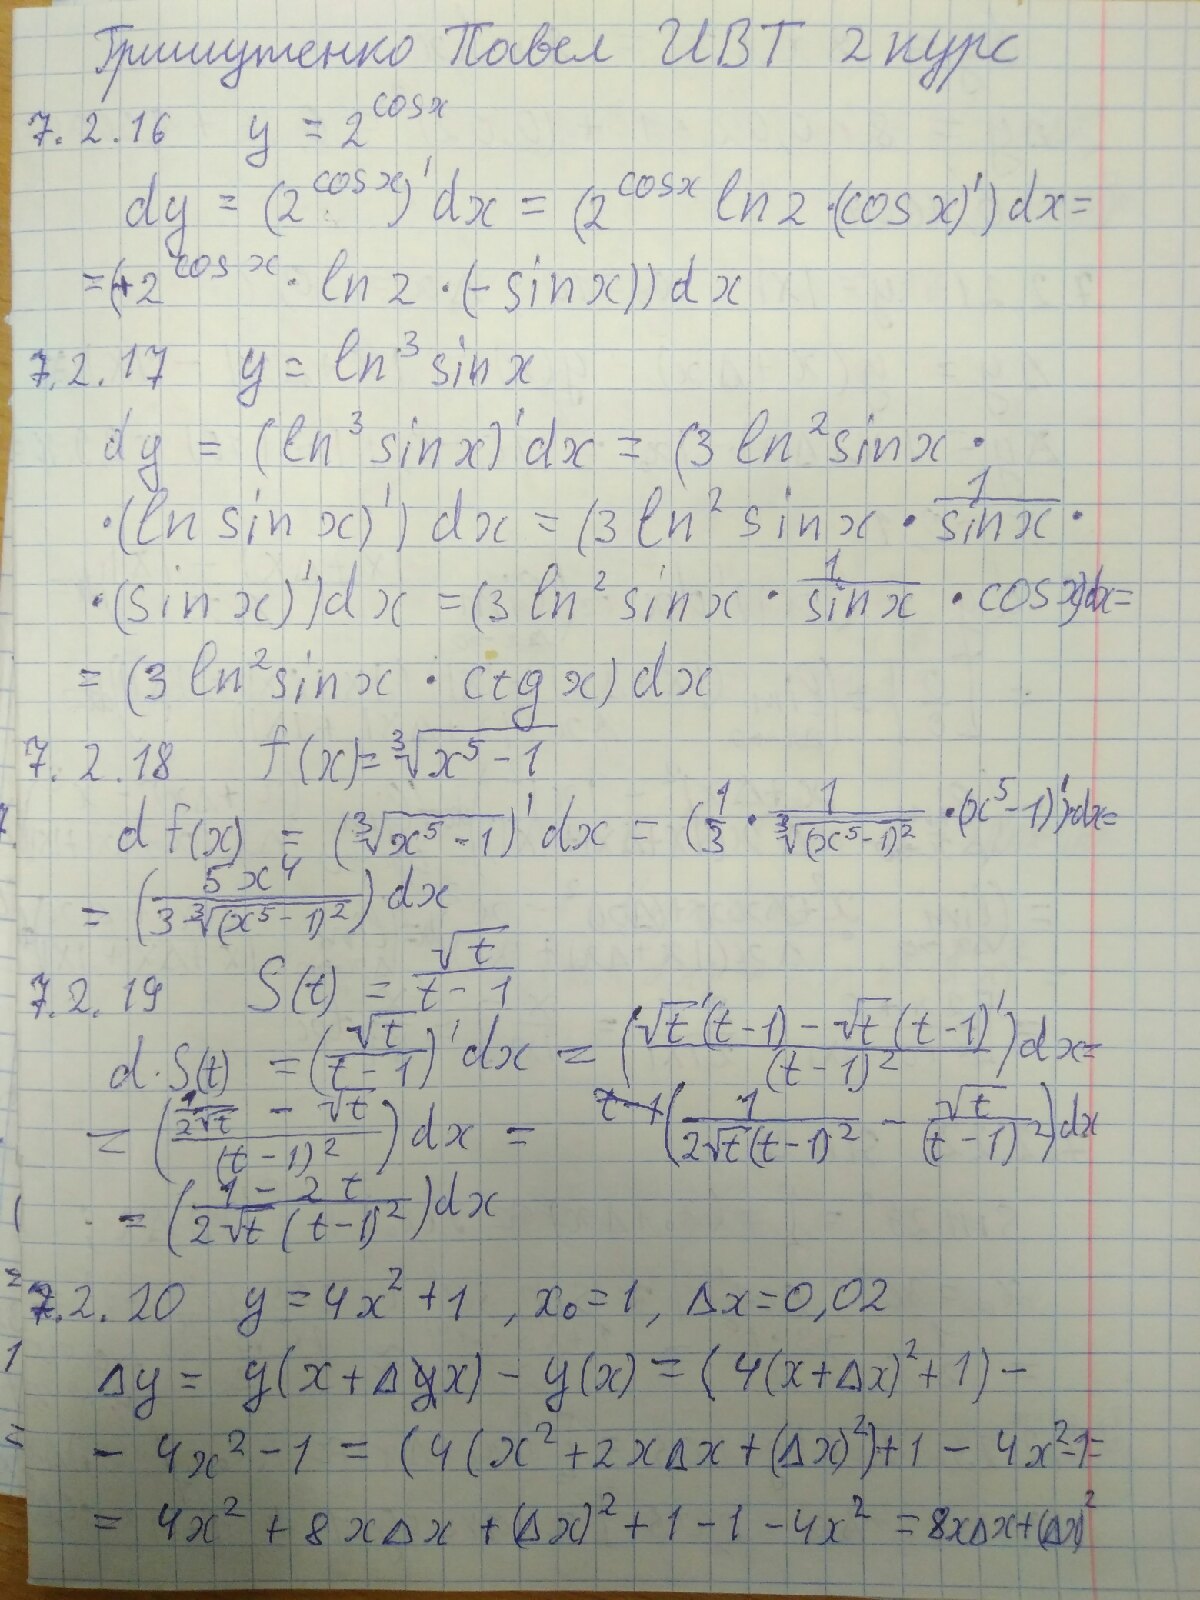 Гришутенко Павел ИВТ 2 курс
7.2.16 y = 2^{cosx}
dy = (2^{cosx})' dx = (2^{cosx} ln2 ·(cosx)') dx =
= (2^{cosx} · ln2 ·(-sinx)) dx
7.2.17 y = ln³ sinx
dy = (ln³ sinx)' dx = (3 ln² sinx ·
·(ln sinx)') dx = (3 ln² sinx · 1/sinx ·
·(sinx)') dx = (3 ln² sinx · 1/sinx · cosx) dx =
= (3 ln² sinx · ctgx) dx
7.2.18 f(x) = ∛(x⁵-1)
d f(x) = (∛(x⁵-1))' dx = (1/3 · 1/∛((x⁵-1)²) ·(x⁵-1)') dx =
= (5x⁴/(3∛((x⁵-1)²))) dx
7.2.19 S(t) = √t/(t-1)
d·S(t) = (√t/(t-1))' dx = ((√t'(t-1) - √t (t-1)')/(t-1)²) dx =
= ((1/(2√t) - √t)/(t-1)²) dx = (1/(2√t(t-1)²) - √t/(t-1)²) dx
= ((1-2t)/(2√t(t-1)²)) dx
7.2.20 y = 4x²+1, x₀=1, Δx=0,02
Δy = y(x+Δx) - y(x) = (4(x+Δx)²+1) -
- 4x²-1 = (4(x²+2xΔx+(Δx)²)+1 - 4x²-1=
= 4x² + 8xΔx + (Δx)² + 1 - 1 - 4x² = 8xΔx+(Δx)²